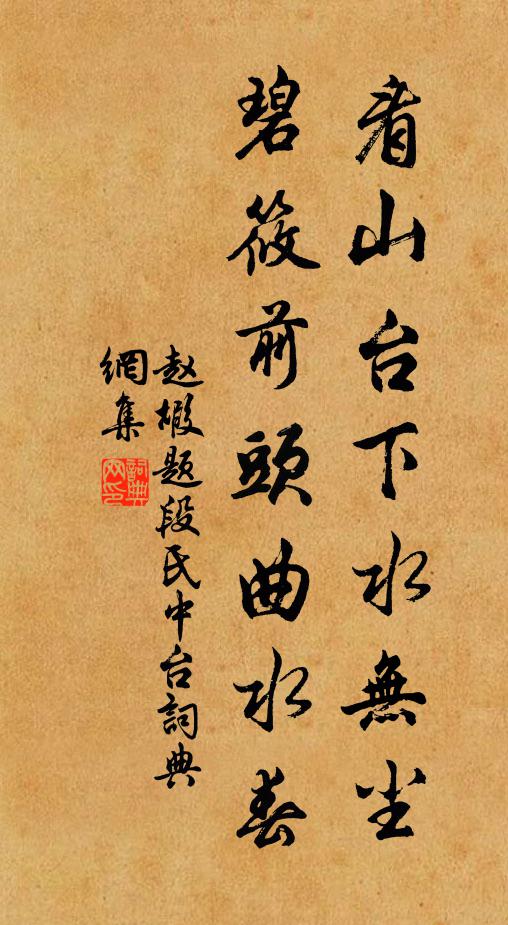 看山台下水無尘
碧筱前頭曲水春
赵嘏题段氏中台詞典
網集
詞典
网印